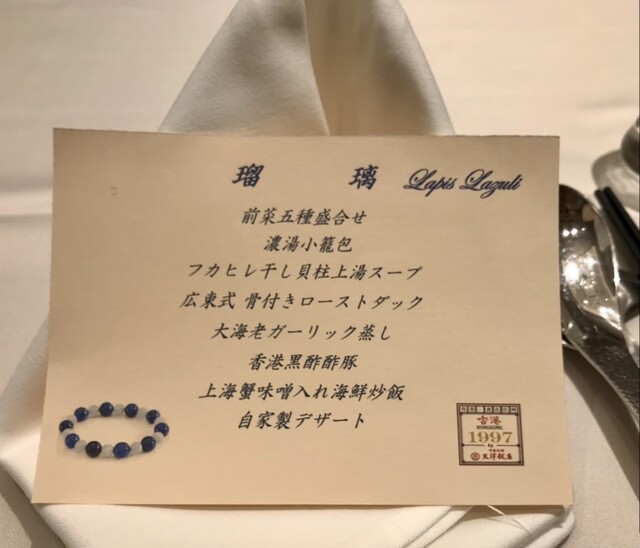 瑠 璃 Lapis Lazuli
前菜五種盛合せ
濃湯小籠包
フカヒレ干し貝柱上湯スープ
広東式 骨付きローストダック
大海老ガーリック蒸し
香港黒酢酢豚
上海蟹味噌入れ海鮮炒飯
自家製デザート
香港
HONGKONG
1997
by